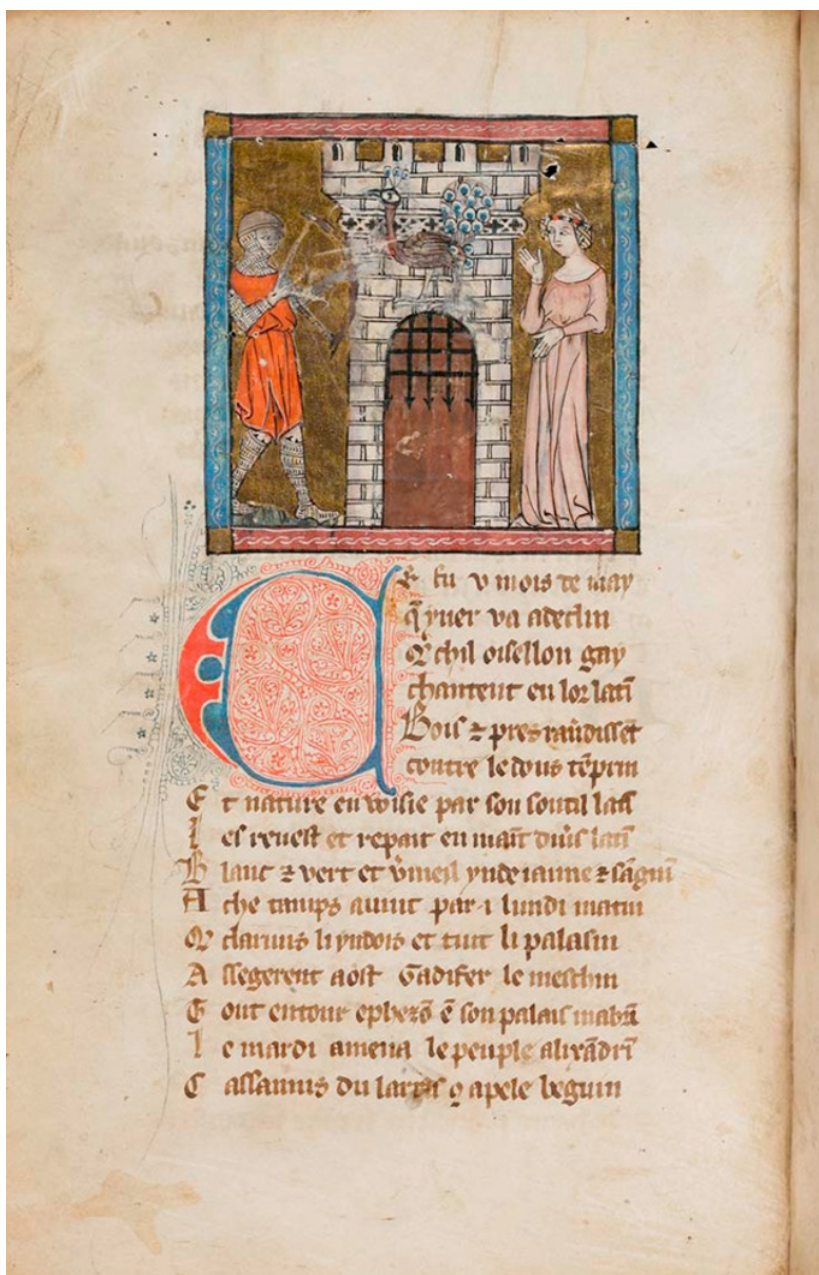 Ce fu v mois de may
q̃ yuer va adeclin
Q̃ chil oisellon gay
chantent en lor lati
Bois ⁊ pres raũdissẽt
contre le dous tẽprin
Et nature enuoisie par son soutil
Les reuest et repait en maĩt
Blanc ⁊ vert et v̾meil ynde iaune ⁊ sãguĩ
A che tamps auint par .i. lundi matin
Q̃ clarvus li yndois et tuit li palasin
Assegerent aost Gadifer le meschin
Tout entour epheʒõ ẽ son palais mabrĩ
Le mardi amena le peuple alixãdrĩ
Cassamus du larris q̃ apele beguin